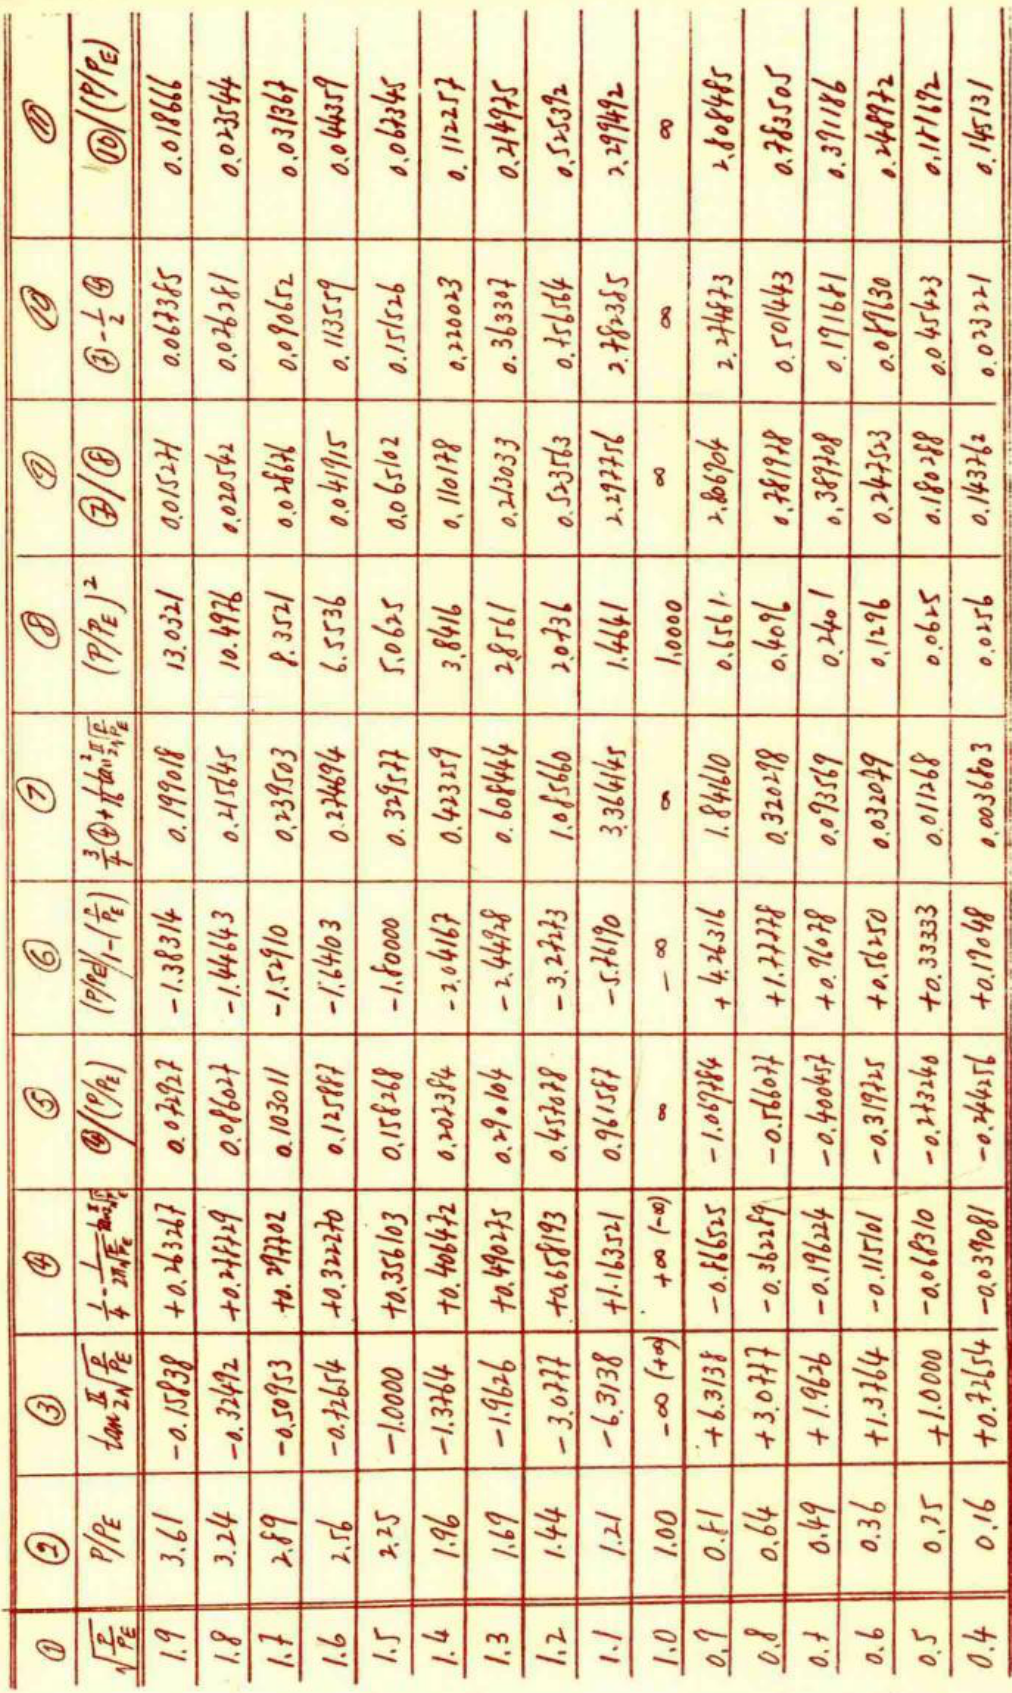 ① ② ③ ④ ⑤ ⑥ ⑦ ⑧ ⑨ ⑩ ⑪
√(P/PE) P/PE tan π/2 √(P/PE) 1/4 - 1/(2π√(P/PE)) tan π/2 √(P/PE) ④/(P/PE) (P/PE)/1-(P/PE) 3/4 ④ + 1/16 tan² π/2 √(P/PE) (P/PE)² ⑦/⑧ ⑦ - 1/2 ④ ⑩/(P/PE)
1.9 3.61 -0.15838 +0.263267 0.072927 -1.38314 0.199018 13.0321 0.015271 0.067385 0.018666
1.8 3.24 -0.32492 +0.278729 0.086027 -1.44643 0.215645 10.4976 0.020542 0.076281 0.023544
1.7 2.89 -0.50953 +0.297702 0.103011 -1.52910 0.239503 8.3521 0.028676 0.090652 0.031367
1.6 2.56 -0.72654 +0.322270 0.125887 -1.64103 0.274694 6.5536 0.041915 0.113559 0.044359
1.5 2.25 -1.0000 +0.356103 0.158268 -1.80000 0.329577 5.0625 0.065102 0.151526 0.067345
1.4 1.96 -1.3764 +0.406472 0.207384 -2.04167 0.423259 3.8416 0.110178 0.220023 0.112257
1.3 1.69 -1.9626 +0.490275 0.290104 -2.44928 0.608444 2.8561 0.213033 0.363307 0.214975
1.2 1.44 -3.0777 +0.658193 0.457078 -3.27273 1.085660 2.0736 0.523563 0.756564 0.525392
1.1 1.21 -6.3138 +1.163521 0.961587 -5.76190 3.364145 1.4641 2.297756 2.782385 2.299492
1.0 1.00 -∞ (+∞) +∞ (-∞) ∞ -∞ ∞ 1.0000 ∞ ∞ ∞
0.9 0.81 +6.3138 -0.866525 -1.069784 +4.26316 1.841610 0.6561 2.806904 2.274873 2.808485
0.8 0.64 +3.0777 -0.362289 -0.566077 +1.77778 0.320298 0.4096 0.781978 0.501443 0.783505
0.7 0.49 +1.9626 -0.196224 -0.400457 +0.96078 0.093569 0.2401 0.389708 0.191681 0.391186
0.6 0.36 +1.3764 -0.115101 -0.319725 +0.56250 0.032079 0.1296 0.247523 0.089630 0.248972
0.5 0.25 +1.0000 -0.068310 -0.273240 +0.33333 0.011268 0.0625 0.180288 0.045423 0.181692
0.4 0.16 +0.72654 -0.039081 -0.244256 +0.19048 0.0036803 0.0256 0.143762 0.023221 0.145131